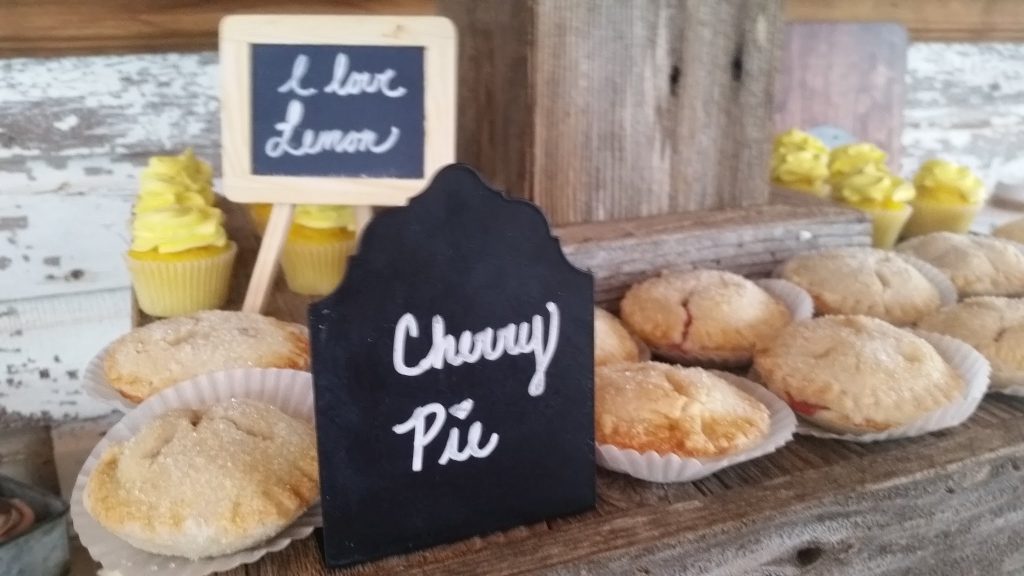 I love
Lemon
Cherry
Pie